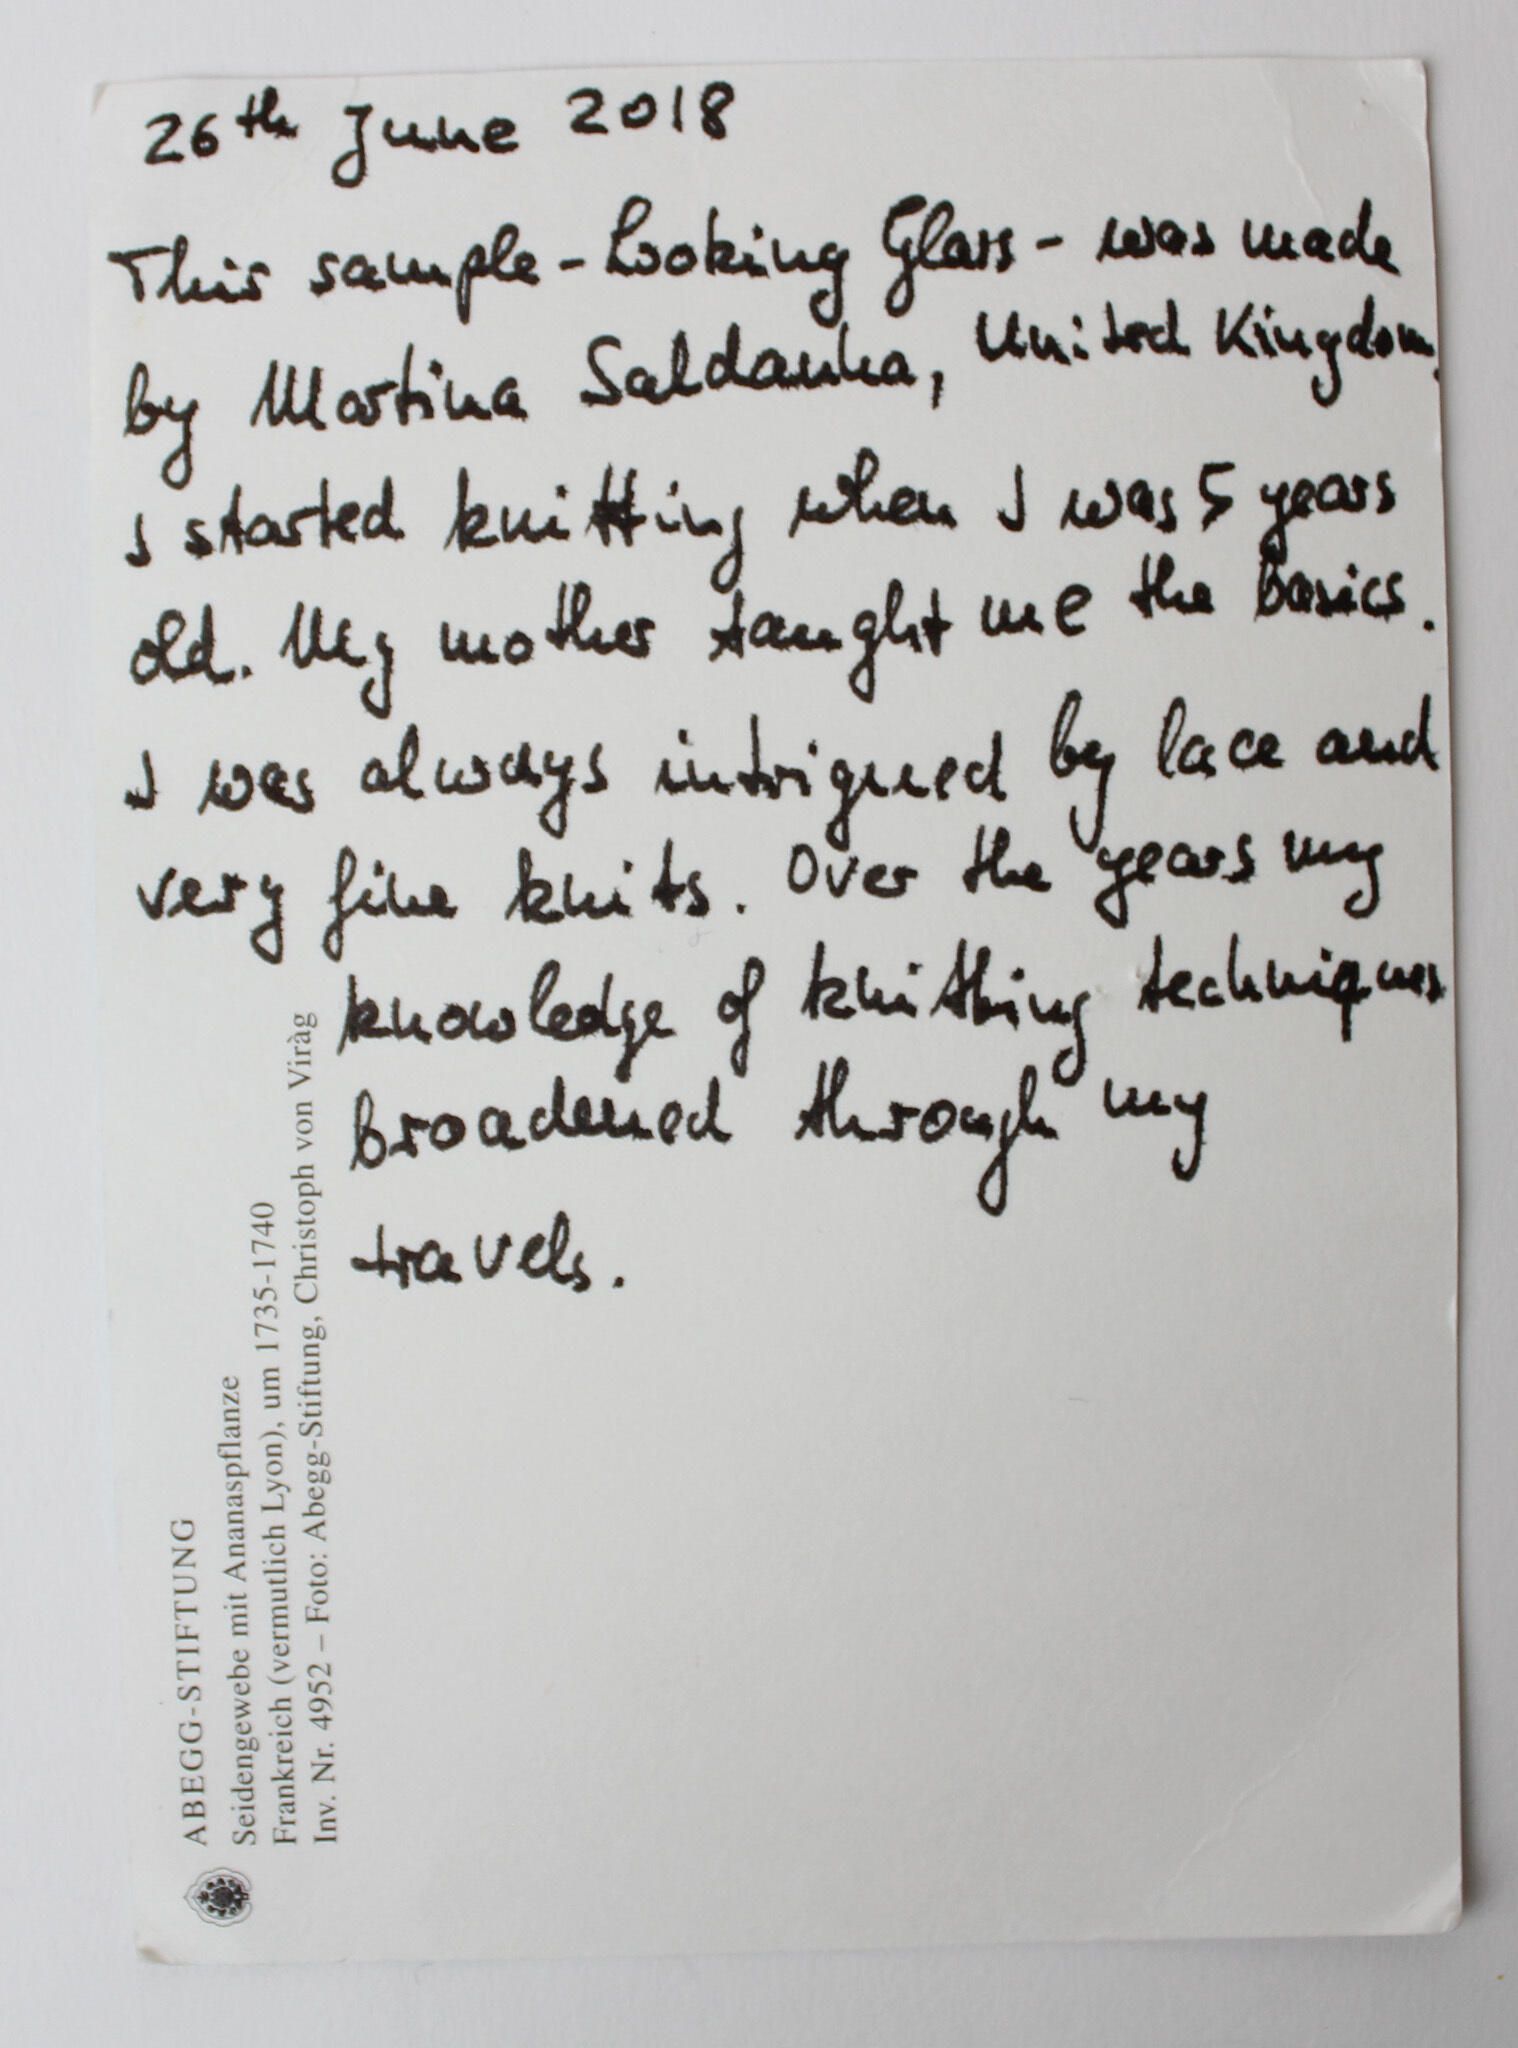 26th June 2018
This sample - Looking Glass - was made
by Martina Saldanha, United Kingdom.
I started knitting when I was 5 years
old. My mother taught me the basics.
I was always intrigued by lace and
very fine knits. Over the years my
knowledge of knitting techniques
broadened through my
travels.
ABEGG-STIFTUNG
Seidengewebe mit Ananaspflanze
Frankreich (vermutlich Lyon), um 1735-1740
Inv. Nr. 4952 – Foto: Abegg-Stiftung, Christoph von Viràg